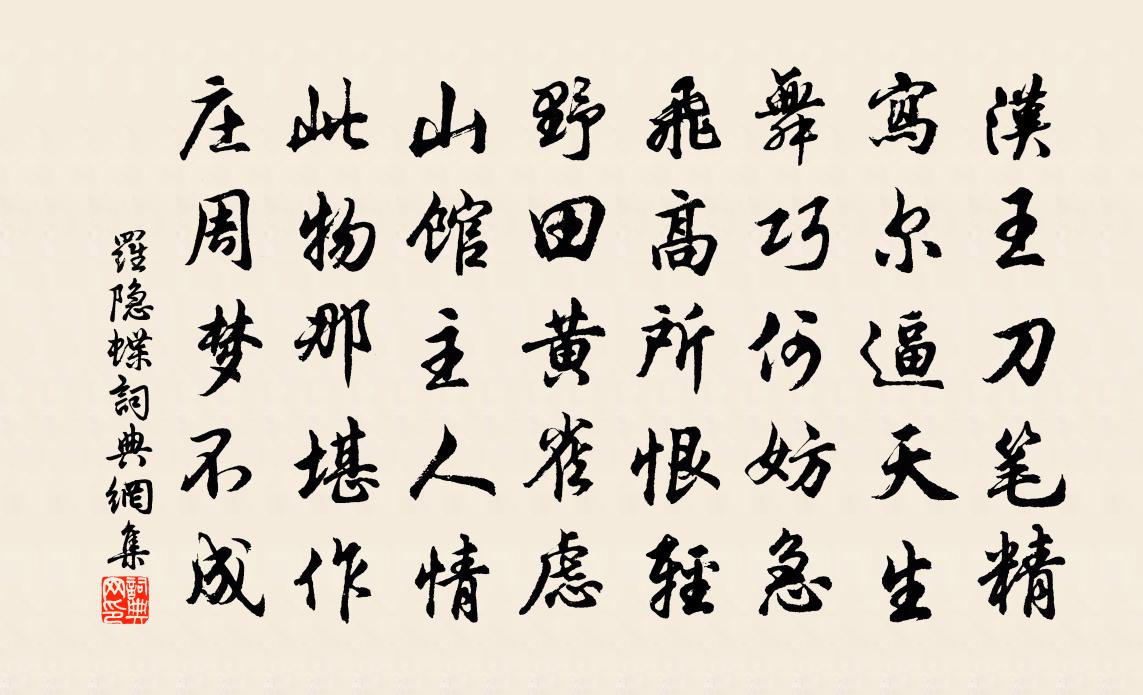 漢王刀笔精
寫尔逼天生
舞巧何妨急
飛高所恨輕
野田黄雀慮
山馆主人情
此物那堪作
庄周梦不成
羅隐蝶詞典網集
詞典网印